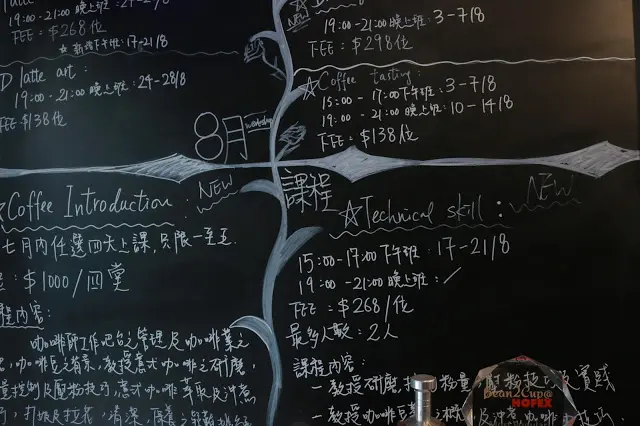 latte art:
19:00-21:00 晚上班: 24-28/8
FEE = $268位
☆ 新增下午班: 17-21/8
D latte art:
19:00-21:00 晚上班: 24-28/8
FEE: $138位
NEW
19:00-21:00 晚上班: 3-7/8
FEE = $298位
☆ Coffee tasting:
15:00-17:00 下午班: 3-7/8
19:00-21:00 晚上班: 10-14/8
FEE = $138位
8月 workshop
課程
☆ Coffee Introduction: NEW
七月內任選四天上課,只限一至五
$1000/四堂
程內容:
咖啡師工作吧台之管理及咖啡業之
咖啡豆之背景,教授意式咖啡之研磨,
量控制及壓粉技巧,意式咖啡萃取及沖煮
☆ Technical skill: NEW
15:00-17:00 下午班: 17-21/8
19:00-21:00 晚上班: /
FEE = $268/位
最多人數: 2人
課程內容:
一教授研磨,控 粉量,壓粉技巧及實踐
一教授咖啡豆 之概 及沖煮咖啡之技巧
Bean2Cup@
HOFEX